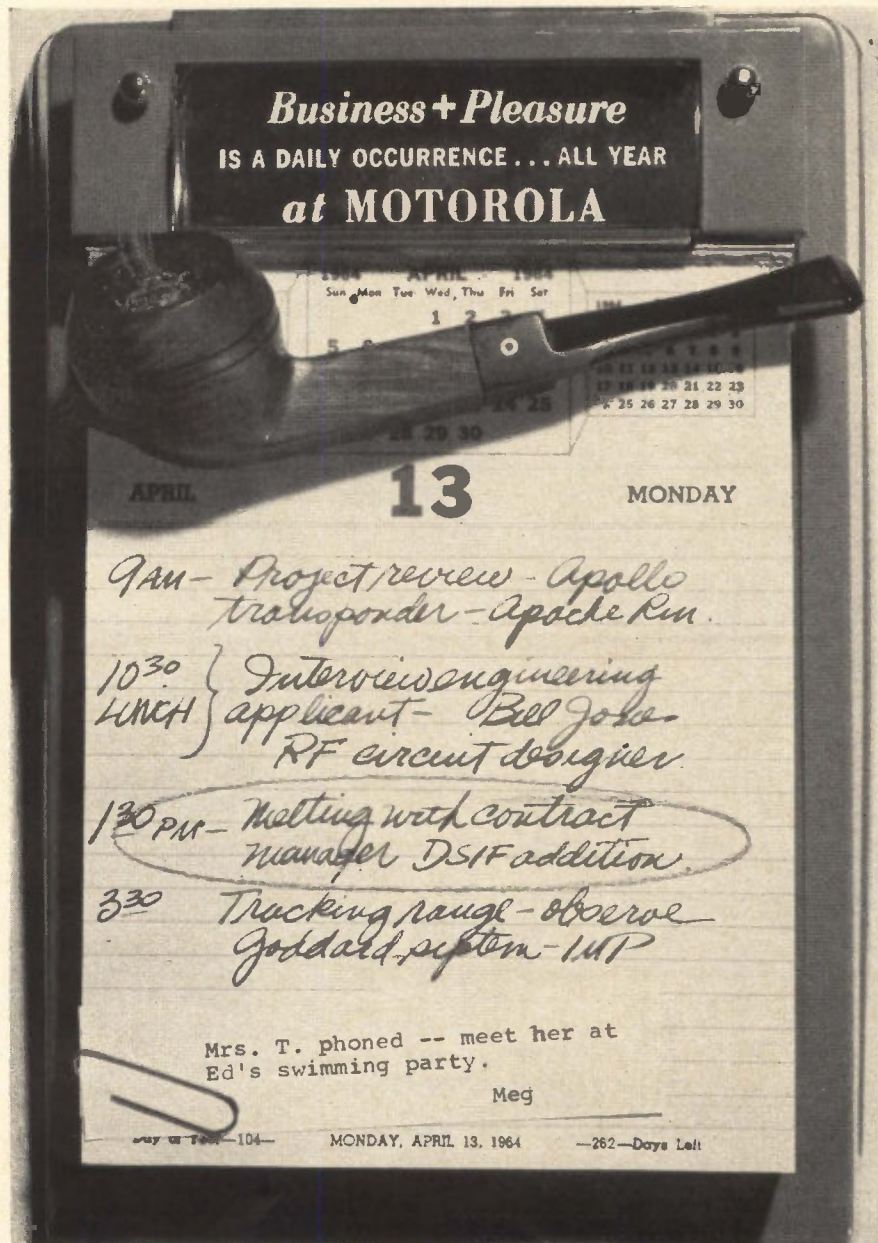 Business + Pleasure
IS A DAILY OCCURRENCE... ALL YEAR
at MOTOROLA
1964 APRIL 1964
Sun Mon Tue Wed Thu Fri Sat
1 2 3
5
24 25
28 29 30
1964
6 7 8 9
10 11 12 13 14 15 16
17 18 19 20 21 22 23
25 26 27 28 29 30
APRIL 13 MONDAY
9AM- Project review - Apollo
transponder - Apache Rm.
10 30 Interview engineering
LUNCH applicant - Bill Jones
RF circuit designer
1 30 PM- Meeting with contract
manager DSIF addition.
3 30 Tracking range - observe
Goddard system - IMP
Mrs. T. phoned -- meet her at
Ed's swimming party.
Meg
Day of Year-104- MONDAY, APRIL 13, 1964 -262-Days Left